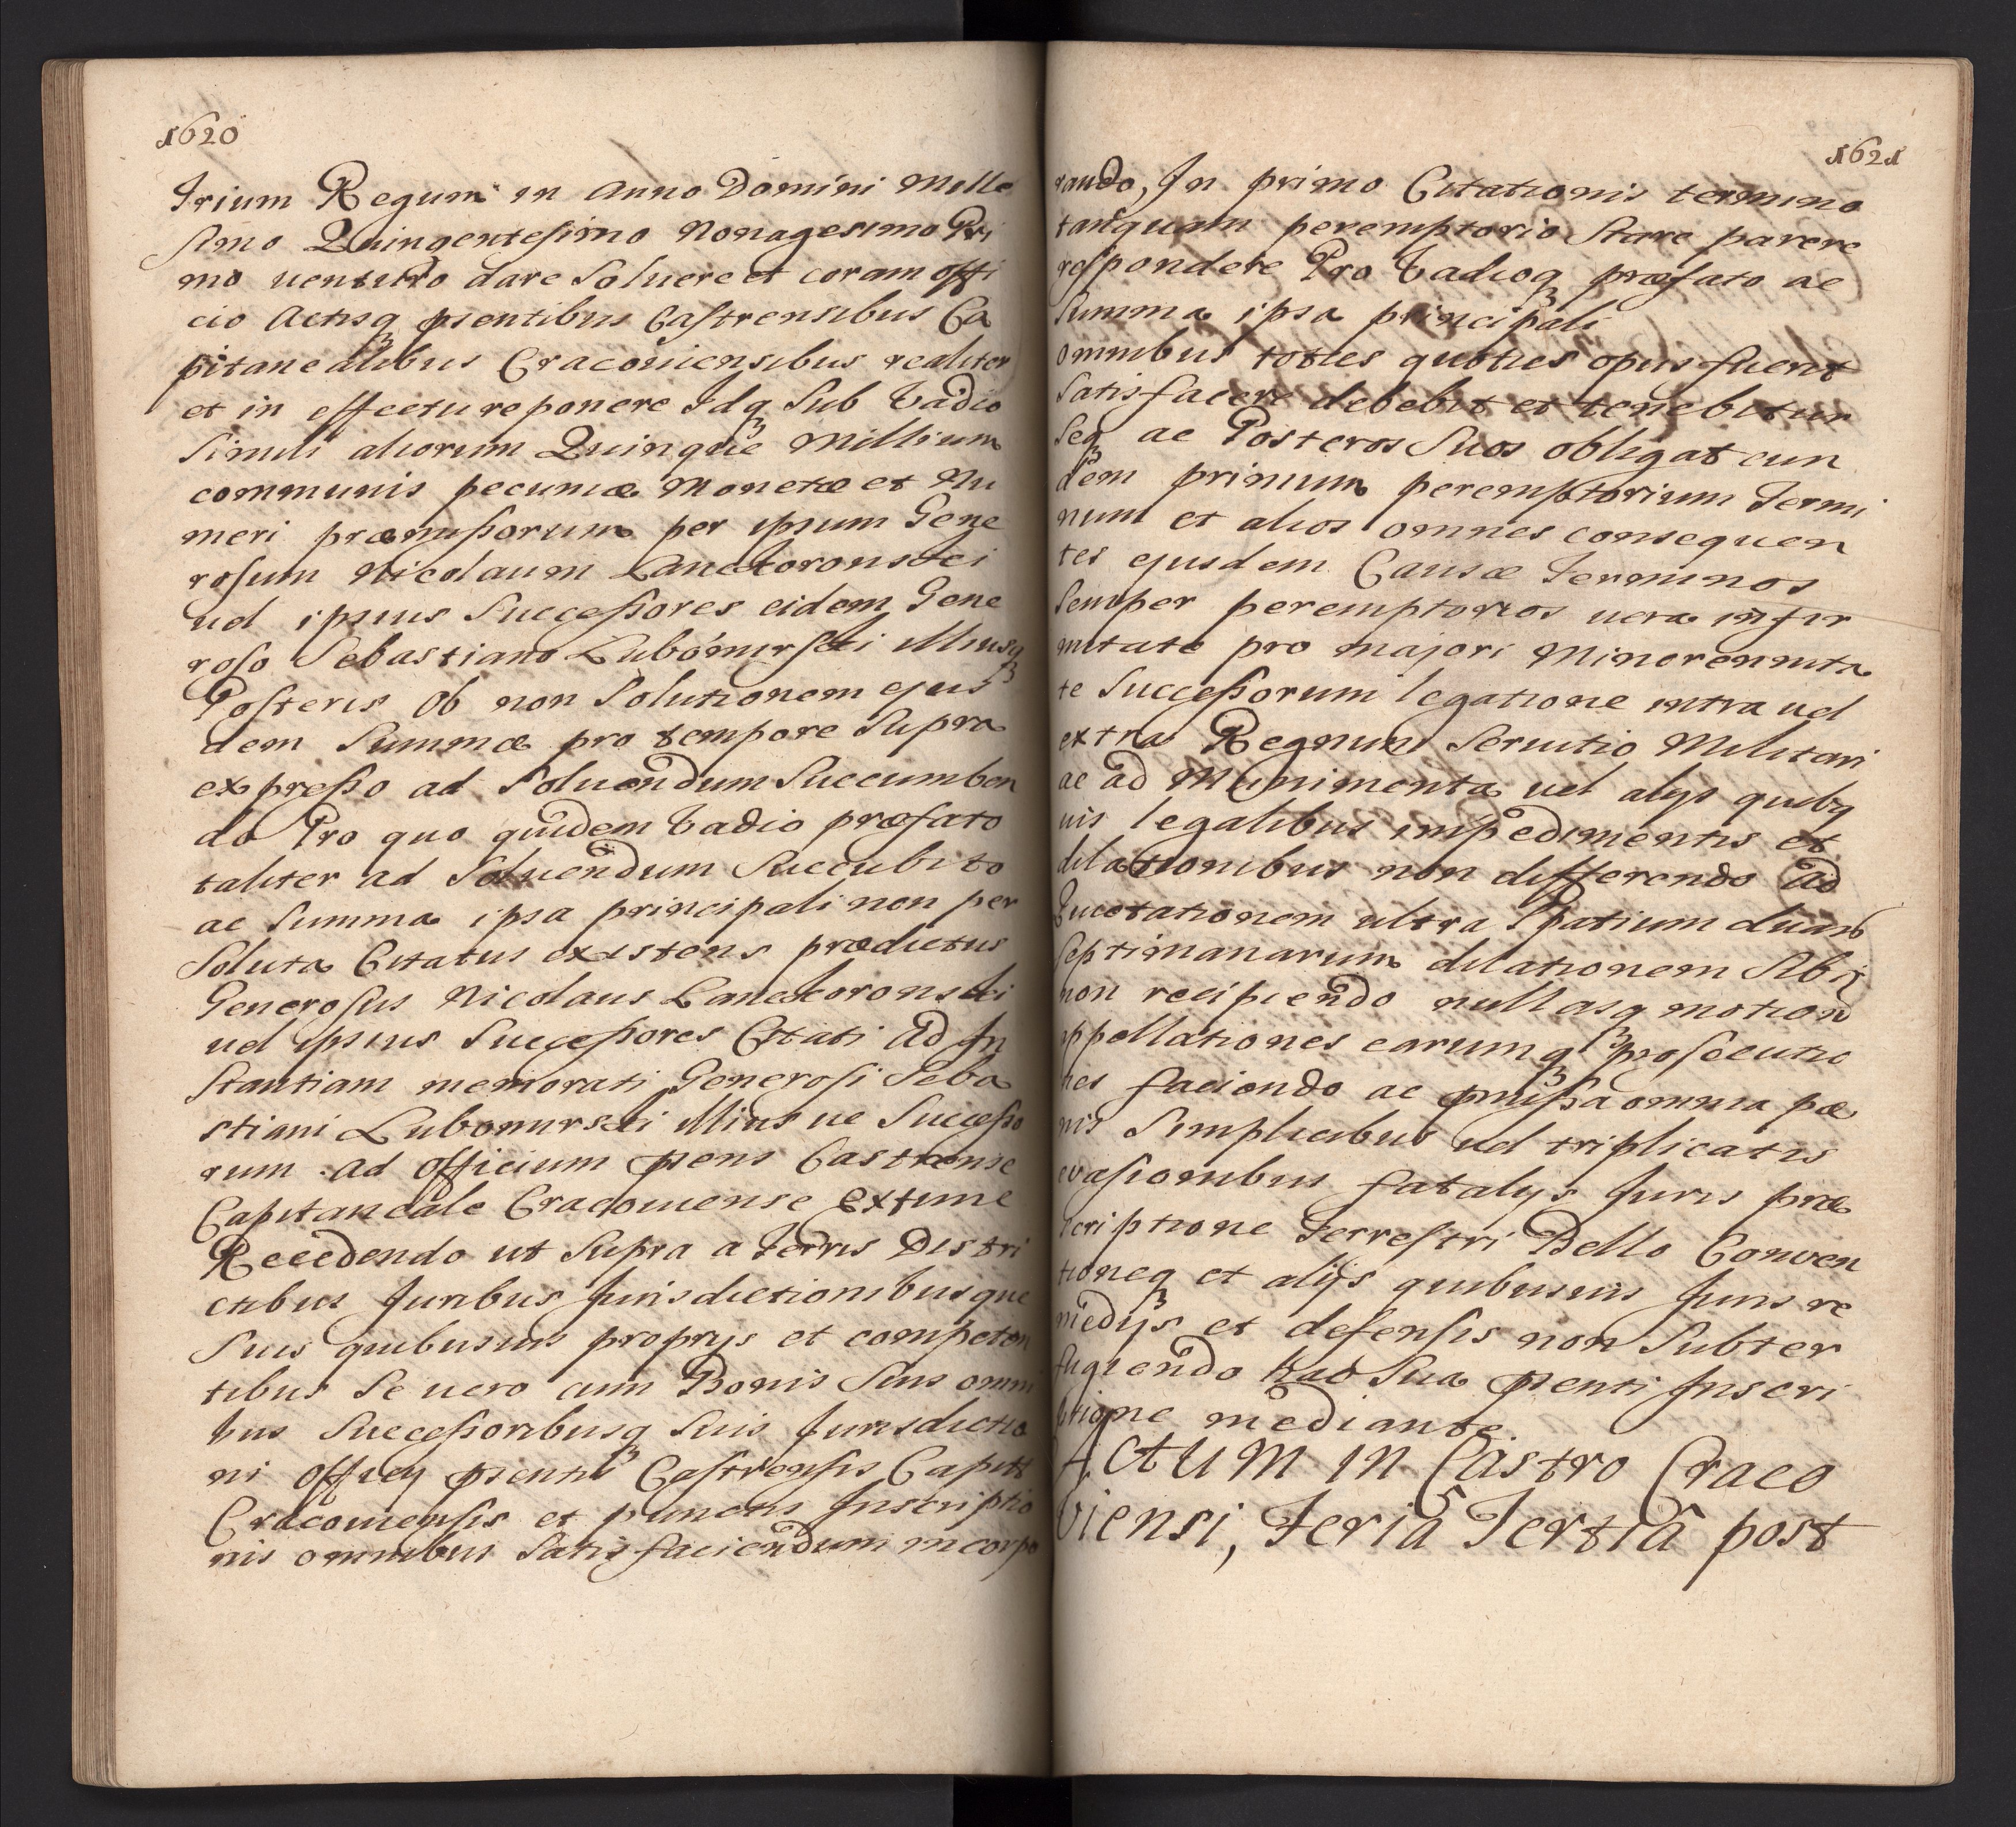 1620
Trium Regum in Anno Domini Mille
simo Quingentesimo Nonagesimo Pri
mo uenturo dare Soluere et coram offi
cio Actisq3 pσentibus Castrensibus Ca
pitanealibus Cracouiensibus realiter
et in effectu reponere Idq3 Sub Vadio
Simili aliorum Quinque Millium
communis pecuniæ Monetæ et Nu
meri præmissorum per ipsum Gene
rosum Nicolaum Lanckoronski
uel ipsius Successores eidem Gene
roso Sebastiano Lubomirski Illiusq3
Posteris Ob non Solutionem ejus
dem Summæ pro tempore Supra
expresso ad Soluendum Succumben
do Pro quo quidem Vadio præfato
taliter ad Soluendum Succubito
ac Summa ipsa principali non per
Soluta Citatus existens prædictus
Generosus Nicolaus Lanckoronski
uel ipsius Successores Citati Ad In
Stantiam memorati Generosi Seba
stiani Lubomirski Illius ue Successo
rum ad Officium pσens Castrense
Capitaneale Cracouiense Ex tunc
Recedendo ut Supra a Terris Distri
ctibus Juribus Jurisdictionibusque
Suis quibusuis proprys et competen
tibus Se uero cum Bonis Suis omni
bus Successoribusq3 Suis Jurisdictio
ni Officy pσentis Castrensis Capitt
Cracouiensis et punctis Inscriptio
nis omnibus Satisfaciendum incorpo
1621
rando, In primo Citationis termino
tanquam peremptorio Stare parere
respondere Pro Vadioq3 præfato ac
Summa ipsa principali
omnibus toties quoties opus fuerit
Satisfacere debebit et tenebitur
Seq3 ac Posteros Suos obligat eun
dem primum peremptorium Termi
num et alios omnes consequen
tes ejusdem Causæ Terminos
Semper peremptorios uera infir
mitate pro majori Minorennita
te Successorum legatione intra uel
extra Regnum Seruitio Militari
ac ad Munimenta uel alys quibq
uis legalibus impedimentis et
dilationibus non differendo Ad
Euictationem ultra Spatium duar
Septimanarum dilationem Sibi
non recipiendo nullasq3 motion
appellationes earumq3 prosecutio
nes faciendo ac pmissa omnia pæ
nis Simplicibus uel triplicatis
euasionibus fatalys Juris præ
scriptione Terrestri Bello Conuen
tioneq3 et alijs quibusuis Juris re
medijs et defensis non Subter
fugiendo hac Sua pσenti Inscri
ptione mediante
Actum in Castro Craco
viensi, Feria Tertia post